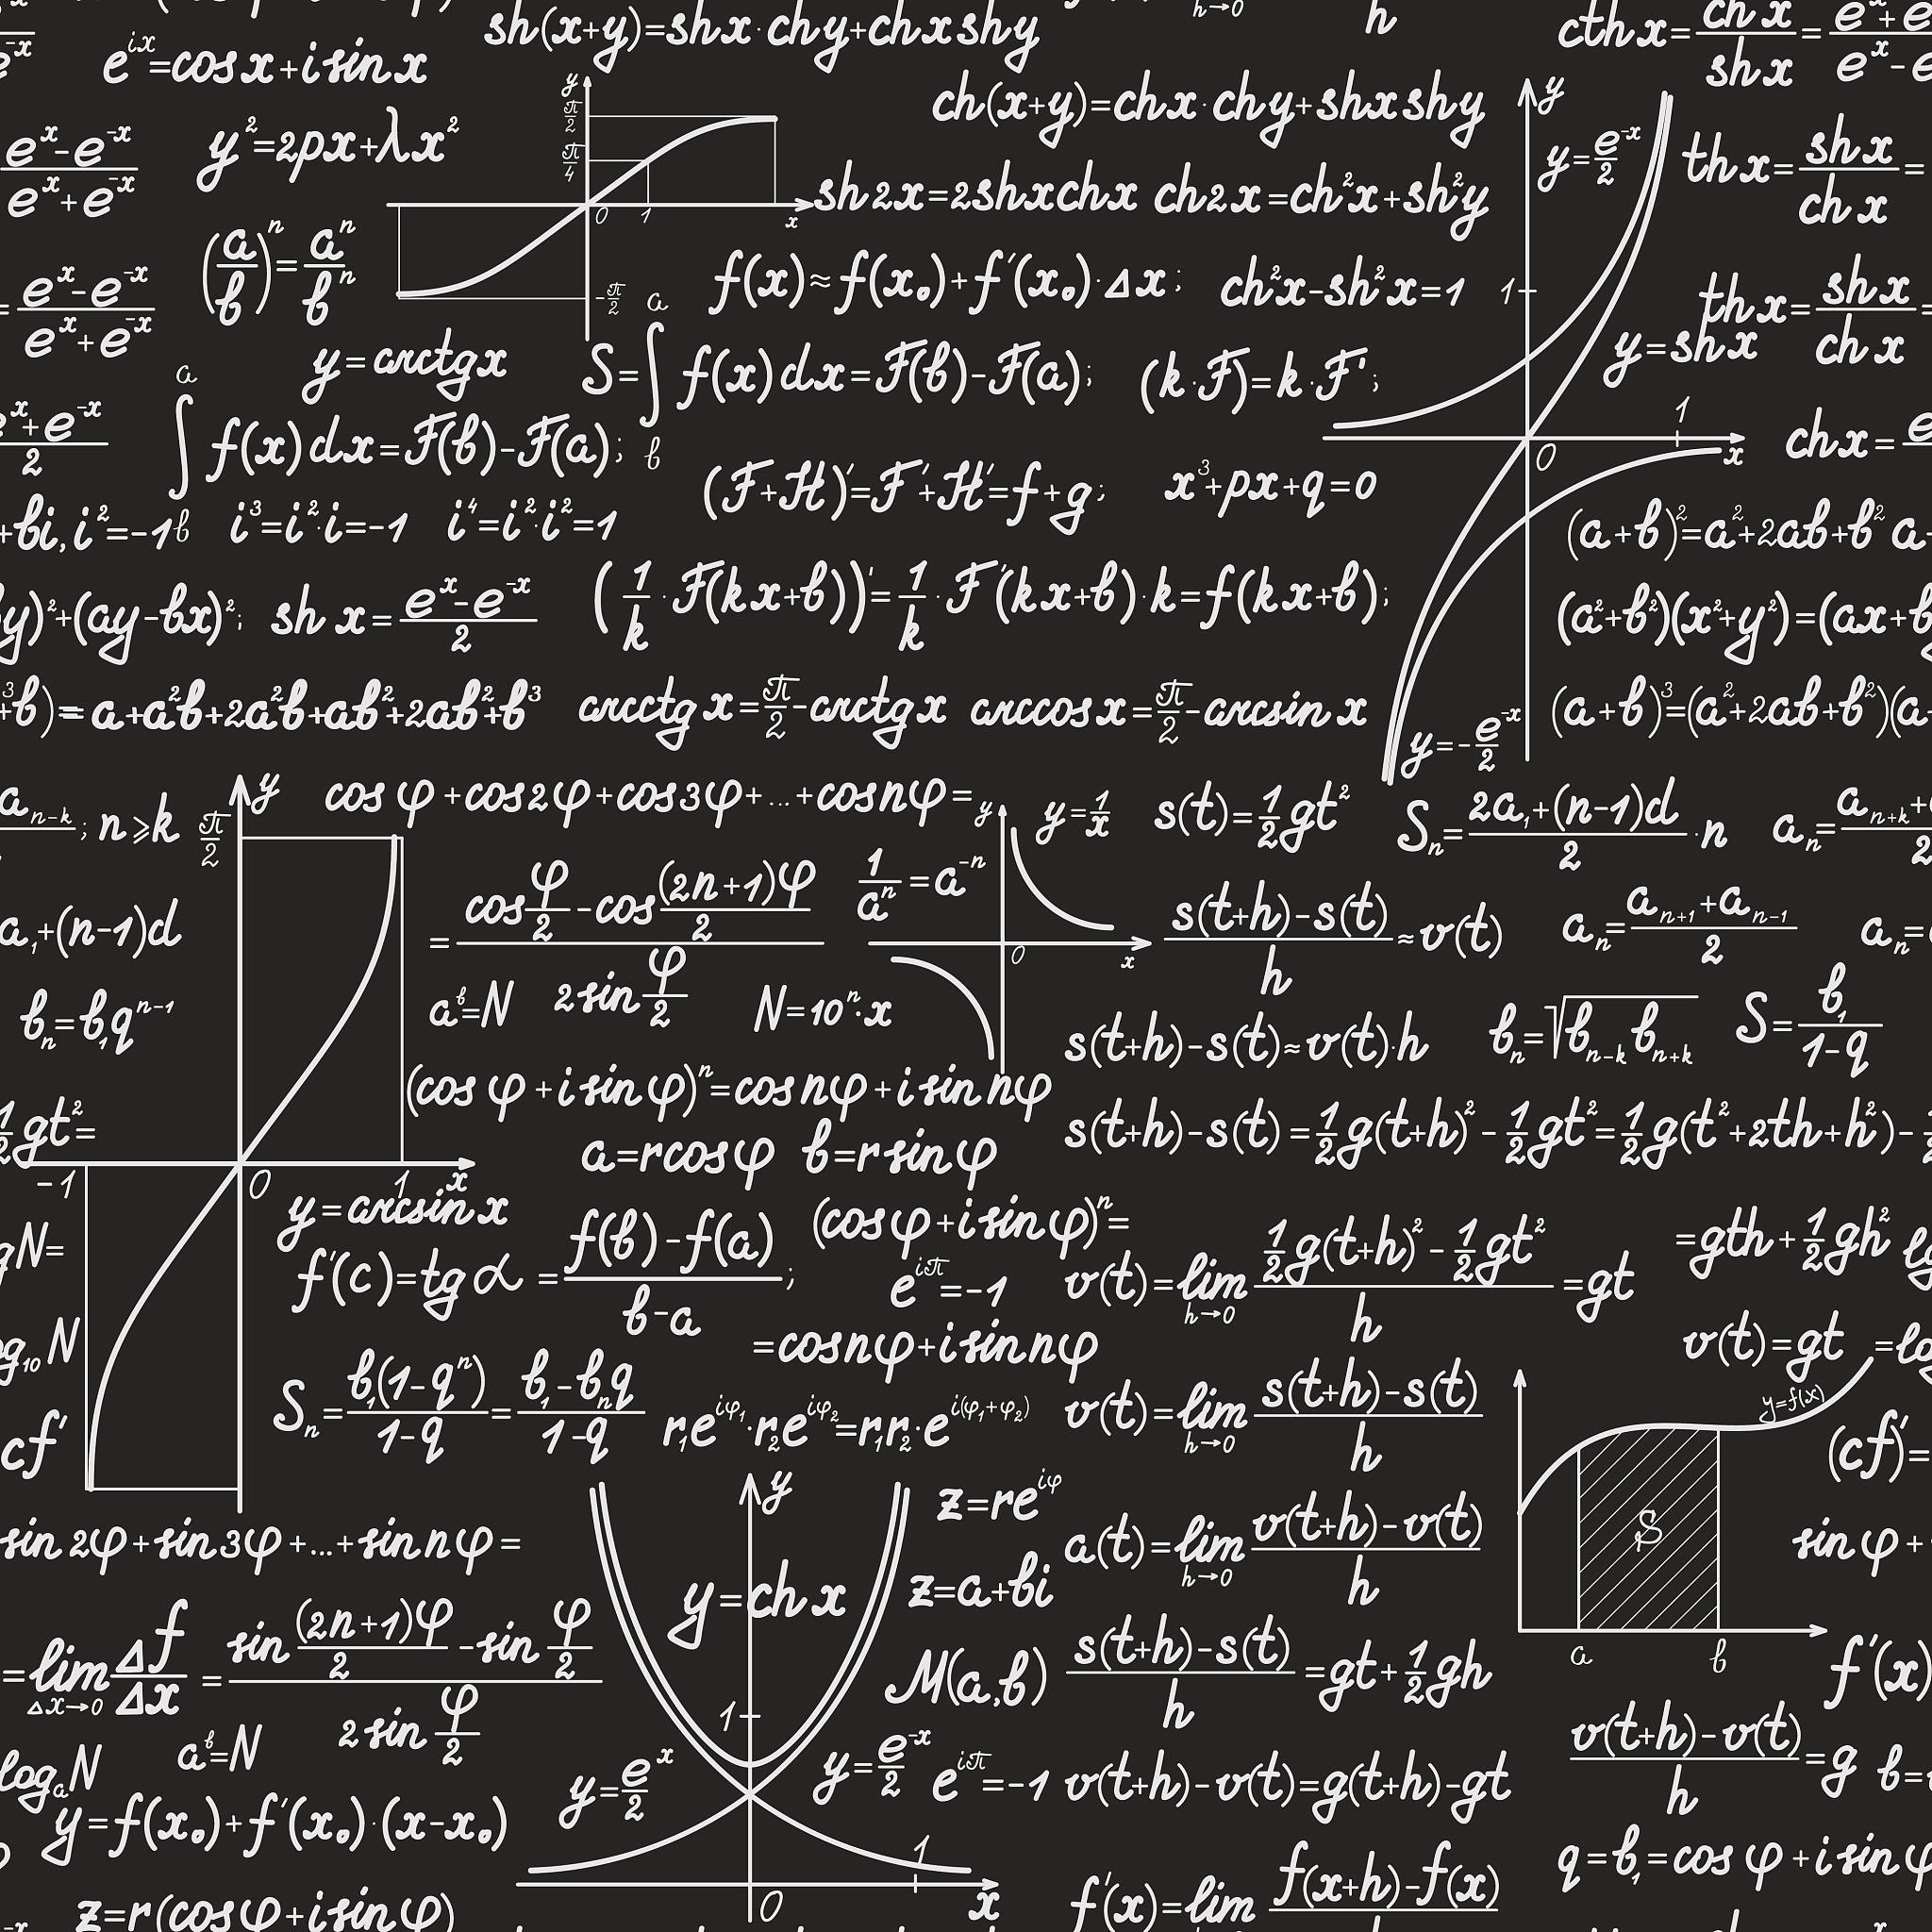 sh(x+y)=shx·chy+chxshy
h→0
h
cthx=chx/shx=
e^{ix}=cosx+isinx
ch(x+y)=chx·chy+shxshy
y
y
π/2
π/4
0
1
x
-π/2
y=e^{-x}/2
thx=shx/chx=
(e^x-e^{-x})/(e^x+e^{-x})
y²=2px+λx²
sh2x=2shxchx
ch2x=ch²x+sh²y
(a/b)^n=a^n/b^n
f(x)≈f(x₀)+f'(x₀)·Δx;
ch²x-sh²x=1
1
thx=shx/chx=
=(e^x-e^{-x})/(e^x+e^{-x})
y=arctgx
S=∫_b^a f(x)dx=F(b)-F(a);
(k·F)=k·F';
y=shx
∫_b^a f(x)dx=F(b)-F(a);
1
0
x
chx=
(F+H)'=F'+H'=f+g;
x³+px+q=0
+bi, i²=-1
i³=i²·i=-1
i⁴=i²·i²=1
(a+b)²=a²+2ab+b²
y)²+(ay-bx)²;
shx=(e^x-e^{-x})/2
(1/k·F(kx+b))'=1/k·F'(kx+b)·k=f(kx+b);
(a²+b²)(x²+y²)=(ax+b
+b)=a+a²b+2a²b+ab²+2ab²+b³
arcctgx=π/2-arctgx
arccosx=π/2-arcsinx
(a+b)³=(a²+2ab+b²)(a
y=-e^{-x}/2
a_{n-k}; n⩾k
π/2
y
cosφ+cos2φ+cos3φ+...+cosnφ=
y
y=1/x
s(t)=1/2gt²
S_n=(2a₁+(n-1)d)/2·n
a_n=
=(cosφ/2-cos(2n+1)φ/2)/(2sinφ/2)
1/a^n=a^{-n}
0
x
(s(t+h)-s(t))/h≈v(t)
a_n=(a_{n+1}+a_{n-1})/2
a_n=
a₁+(n-1)d
a^b=N
N=10^n·x
b_n=b₁q^{n-1}
s(t+h)-s(t)≈v(t)·h
b_n=√(b_{n-k}b_{n+k})
S=b₁/(1-q)
(cosφ+isinφ)^n=cosnφ+isinnφ
1/2gt²=
s(t+h)-s(t)=1/2g(t+h)²-1/2gt²=1/2g(t²+2th+h²)-
a=rcosφ
b=rsinφ
-1
0
1
x
y=arcsinx
(cosφ+isinφ)^n=
=gth+1/2gh²
gN=
f'(c)=tgα=(f(b)-f(a))/(b-a);
e^{iπ}=-1
v(t)=lim_{h→0}(1/2g(t+h)²-1/2gt²)/h=gt
=cosnφ+isinnφ
v(t)=gt
g₁₀N
S_n=b₁(1-q^n)/(1-q)=(b₁-b_nq)/(1-q)
r₁e^{iφ₁}·r₂e^{iφ₂}=r₁r₂·e^{i(φ₁+φ₂)}
v(t)=lim_{h→0}(s(t+h)-s(t))/h
y=f(x)
cf'
(cf)'=
y
z=re^{iφ}
S
a
b
sin2φ+sin3φ+...+sinnφ=
a(t)=lim_{h→0}(v(t+h)-v(t))/h
sinφ+
y=chx
z=a+bi
=lim_{Δx→0}Δf/Δx
=(sin(2n+1)φ/2-sinφ/2)/(2sinφ/2)
M(a,b)
(s(t+h)-s(t))/h=gt+1/2gh
f'(x)
1
a^b=N
log_aN
y=e^x/2
y=e^{-x}/2
e^{iπ}=-1
v(t+h)-v(t)=g(t+h)-gt
(v(t+h)-v(t))/h=g
b=
y=f(x₀)+f'(x₀)·(x-x₀)
1
0
x
q=b₁=cosφ+isinφ
z=r(cosφ+isinφ)
f'(x)=lim (f(x+h)-f(x))/h